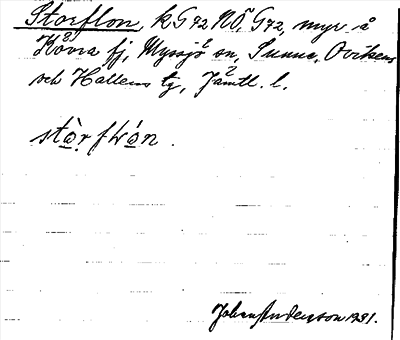 Storflon, kG72NÖ, G72, myr å
Kövra fj, Myssjö sn, Sunne, Ovikens
och Hallens tg, Jämtl. l.
stò̱rfłó̱n.
Johan Anderson 1931.